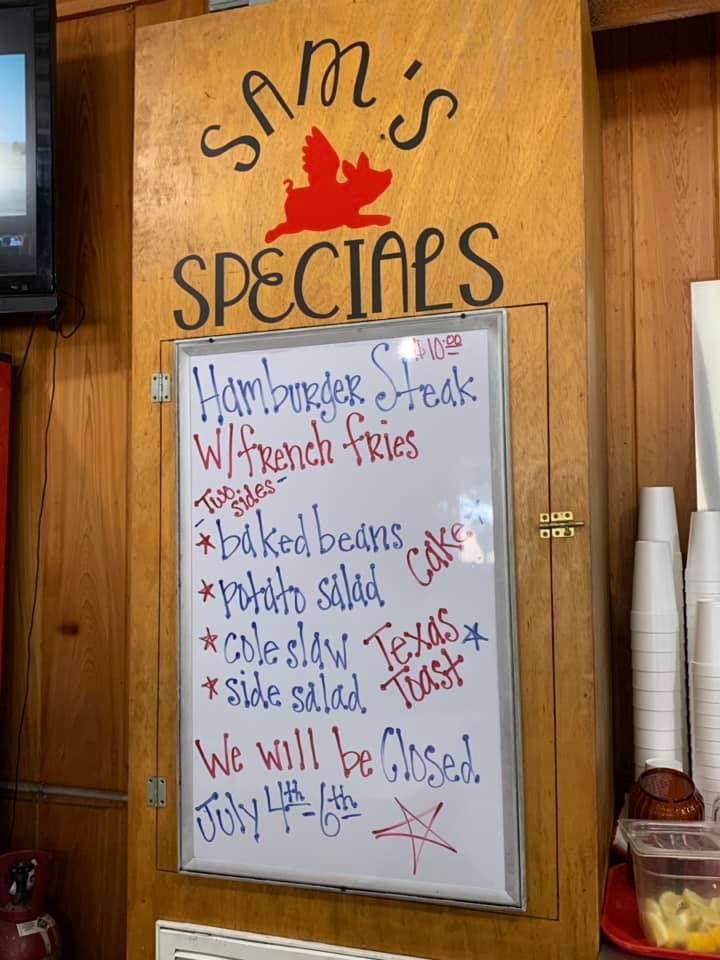 SAM'S
SPECIALS
$10.00
Hamburger Steak
W/french fries
Two sides-
* baked beans
Cake *
* potato salad
* cole slaw
Texas Toast *
* side salad
We will be Closed
July 4th-6th